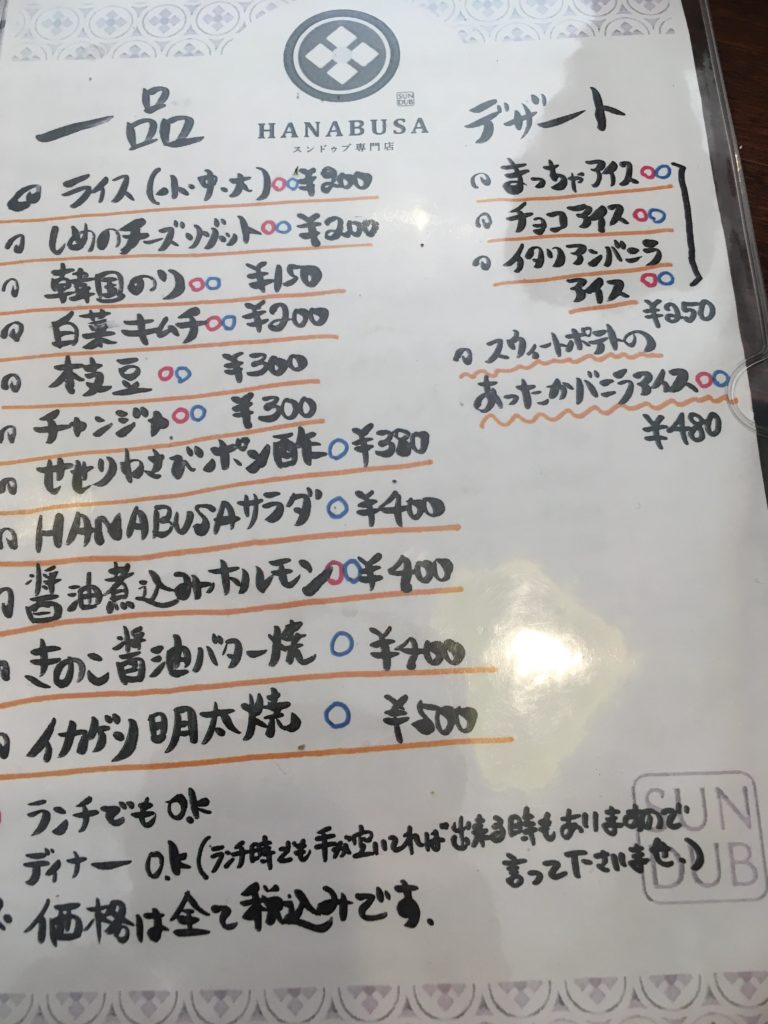 SUN
DUB
HANABUSA
スンドゥブ専門店
一品
ライス(小・中・大)○○¥200
しめのチーズリゾット○○ ¥200
韓国のり○○ ¥150
白菜キムチ○○ ¥200
枝豆○○ ¥300
チャンジャ○○ ¥300
せせりわさびポン酢○¥380
HANABUSAサラダ○¥400
醤油煮込みホルモン○○¥400
きのこ醤油バター焼 ○ ¥400
イカゲソ明太焼 ○ ¥500
デザート
まっちゃアイス○○
チョコアイス○○
イタリアンバニラ
アイス ○○
¥250
スウィートポテトの
あったかバニラアイス○○
¥480
ランチでもO.k
ディナーO.k(ランチ時でも手が空いてれば出来る時もありますので
言って下さいませ。)
価格は全て税込みです。
SUN
DUB